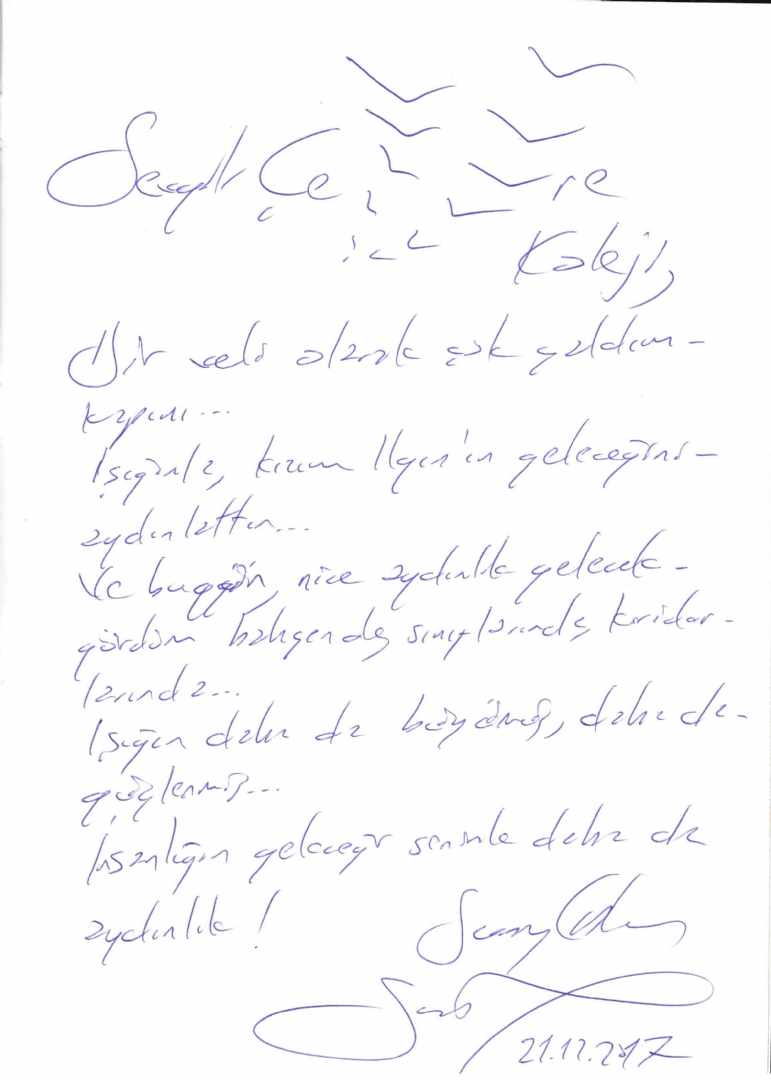 Sevgili Çevre
Koleji,
Bir veli olarak çok çaldım
kapını...
Işığınla, kızım Ilgın'ın geleceğini
aydınlattın...
Ve bugün, nice aydınlık gelecek
gördüm bahçende, sınıflarında, koridor-
larında...
Işığın daha da büyümüş, daha da
güçlenmiş...
İnsanlığın geleceği seninle daha da
aydınlık!
Sunay
21.12.2017